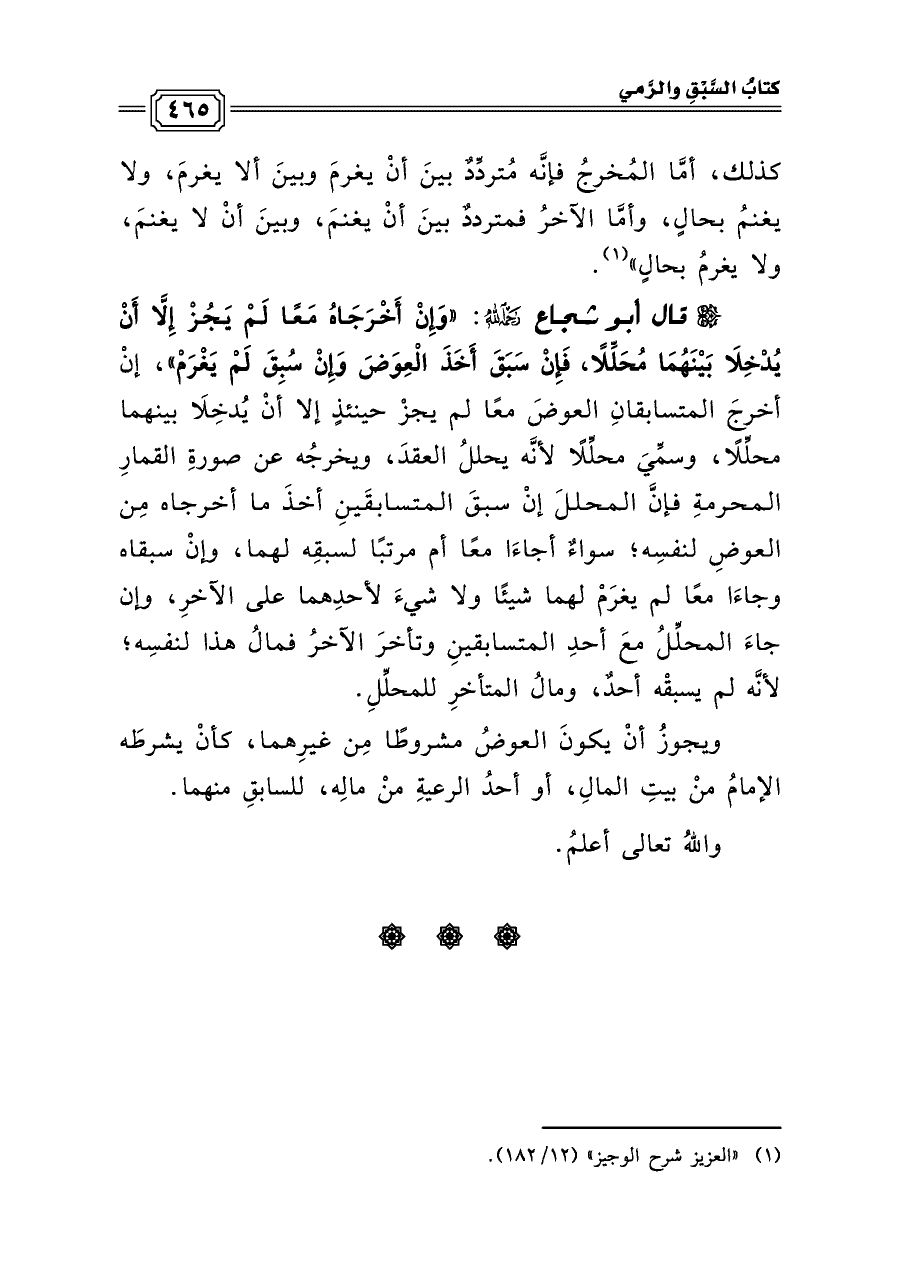 كتابُ السَّبْقِ والرَّمي
٤٦٥
كذلك، أمَّا المُخرجُ فإنَّه مُتردِّدٌ بينَ أنْ يغرمَ وبينَ ألا يغرمَ، ولا
يغنمُ بحالٍ، وأمَّا الآخرُ فمترددٌ بينَ أنْ يغنمَ، وبينَ أنْ لا يغنمَ،
ولا يغرمُ بحالٍ»(١).
قال أبو شجاع رحمه الله: «وَإِنْ أَخْرَجَاهُ مَعًا لَمْ يَجُزْ إِلَّا أَنْ
يُدْخِلَا بَيْنَهُمَا مُحَلِّلًا، فَإِنْ سَبَقَ أَخَذَ الْعِوَضَ وَإِنْ سُبِقَ لَمْ يَغْرَمْ»، إنْ
أخرجَ المتسابقانِ العوضَ معًا لم يجزْ حينئذٍ إلا أنْ يُدخِلَا بينهما
محلِّلًا، وسمِّيَ محلِّلًا لأنَّه يحللُ العقدَ، ويخرجُه عن صورةِ القمارِ
المحرمةِ فإنَّ المحللَ إنْ سبقَ المتسابقَينِ أخذَ ما أخرجاه مِن
العوضِ لنفسِه؛ سواءٌ أجاءَا معًا أم مرتبًا لسبقِه لهما، وإنْ سبقاه
وجاءَا معًا لم يغرَمْ لهما شيئًا ولا شيءَ لأحدِهما على الآخرِ، وإن
جاءَ المحلِّلُ معَ أحدِ المتسابقينِ وتأخرَ الآخرُ فمالُ هذا لنفسِه؛
لأنَّه لم يسبقْه أحدٌ، ومالُ المتأخرِ للمحلِّلِ.
ويجوزُ أنْ يكونَ العوضُ مشروطًا مِن غيرِهما، كأنْ يشرطَه
الإمامُ منْ بيتِ المالِ، أو أحدُ الرعيةِ منْ مالِه، للسابقِ منهما.
واللهُ تعالى أعلمُ.
(١) «العزيز شرح الوجيز» (١٢/ ١٨٢).